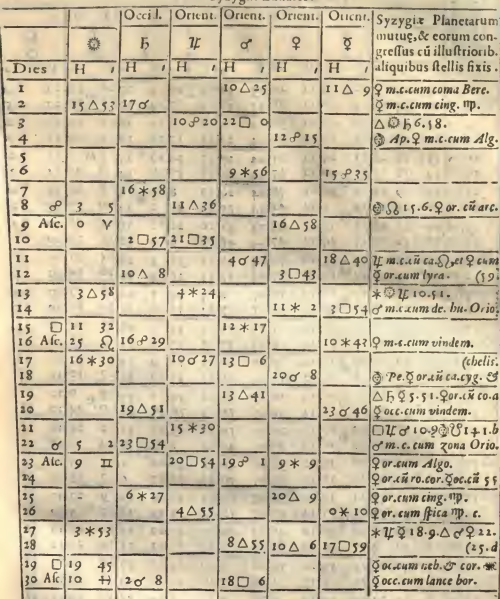 Occi l. Orient. Orient. Orient. Orient. Syzygiæ Planetarum
☉ ♄ ♃ ♂ ♀ ☿ mutuę,& eorum con-
gressus cū illustriorib.
Dies H ′ H ′ H ′ H ′ H ′ H ′ aliquibus stellis fixis.
1 10△25 11△ 9 ♀ m.c.cum coma Bere.
2 15△53 17☌ ☿ m.c.cum cing. ♍.
3 10☍20 22□ 0 △☉♄6.58.
4 12☍15 Ap.♀ m.c.cum Alg.
5
6 9✶56 15☍35
7 16✶58
8 ☍ 3 5 11△36 ☊15.6.♀or. cū arc.
9 Asc. 0 ♈ 16△58
10 2□57 21□35
11 4☌47 18△40 ♃ m.c.cū ca.♌,et ♀ cum
12 10△ 8 3□43 ☿ or.cum lyra. (19.
13 3△58 4✶24 ✶☉♃10.51.
14 11✶ 2 3□54 ♂ m.c.cum de. hu. Orio.
15 □ 11 32 12✶17
16 Asc. 25 ♌ 16☍29 10✶43 ♀ m.c.cum vindem.
17 16✶30 10☌27 13□ 6 (chelis.
18 20☌ 8 Pe.☿or.cū ca.cyg. &
19 13△41 △♄☿5.51.♀or.cū co.a
20 19△51 23☌46 ☿ occ.cum vindem.
21 15✶30 □♃♂10.9 ☋ 14 1.b
22 ☌ 5 2 23□54 ♂ m.c.cum zona Orio.
23 Asc. 9 ♊ 20□54 19☌ 1 9✶ 9 ♀ or.cum Algo.
24 ♀ or.cū ro.cor.☿oc.cū 55
25 6✶27 20△ 9 ♀ or.cum cing. ♍.
26 4△55 0✶10 ♀ or. cum spica ♍. c.
27 3✶53 ✶♃☿18.9.△♂♀22.
28 8△55 10△ 6 17□59 (25.d
29 □ 19 45 ☿ oc.cum neb.& cor.
30 Asc 10 ♓ 20☌ 8 18□ 6 ☿ occ.cum lance bor.